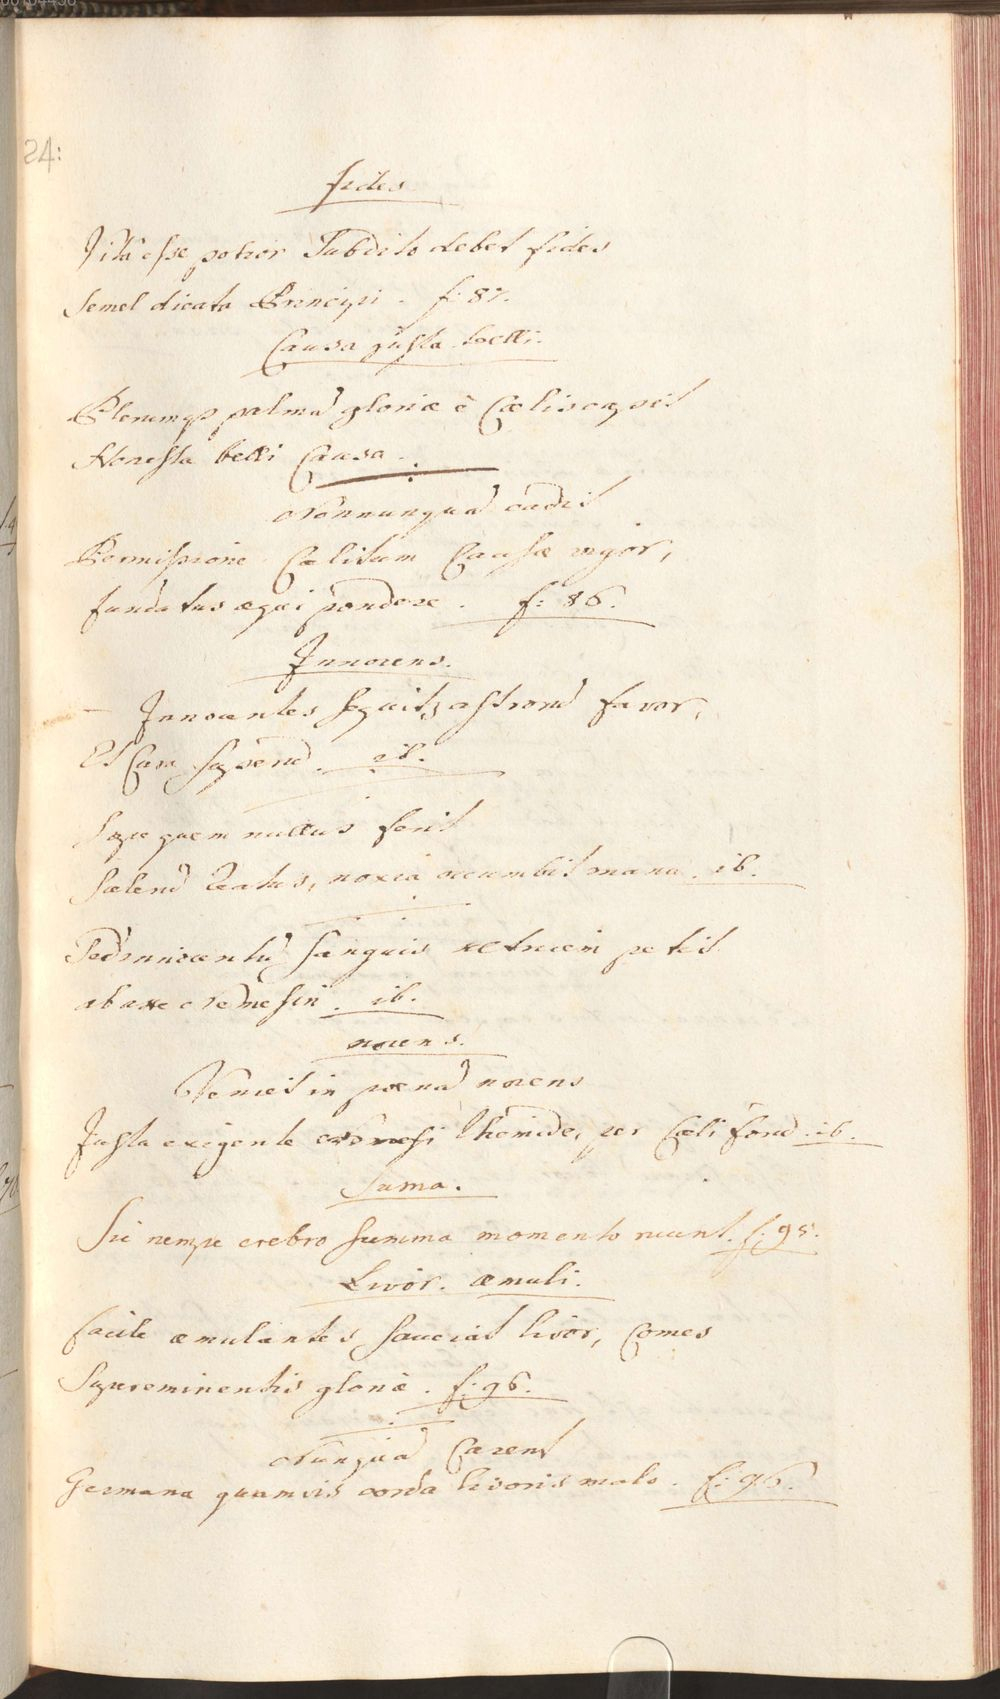 24:
fides
Vita esse potior Subdito debet fides
Semel dicata Principi. f: 87.
Causa justa belli.
Plerumqꝫ palmã gloriæ è Cælis capit
Honesta belli Causa.
Nonnunquã cadit
Permissione Cælitum Causæ vigor,
fundatus æqui pondere. f: 86.
Innocens.
Innocentes sequitꝫ astrorũ favor,
Et Cura Superũ. ib.
Sæpe quem nullus ferit
Scelerũ Reatus, noxia occumbit manu. ib.
Sed innocentũ sanguis ultricem petit
ab axe Nemesin. ib.
nocens.
Venict in pœnã nocens
Justa exigente Themide, per Cæli forũ. ib.
Suma.
Sic nempe crebro summa momento ruunt. f: 95.
Livor. æmuli.
facile æmulantes sauciat livor, Comes
Supereminentis gloriæ. f: 96.
Nunquã Carent
Germana quamvis corda livoris malo. f: 96.